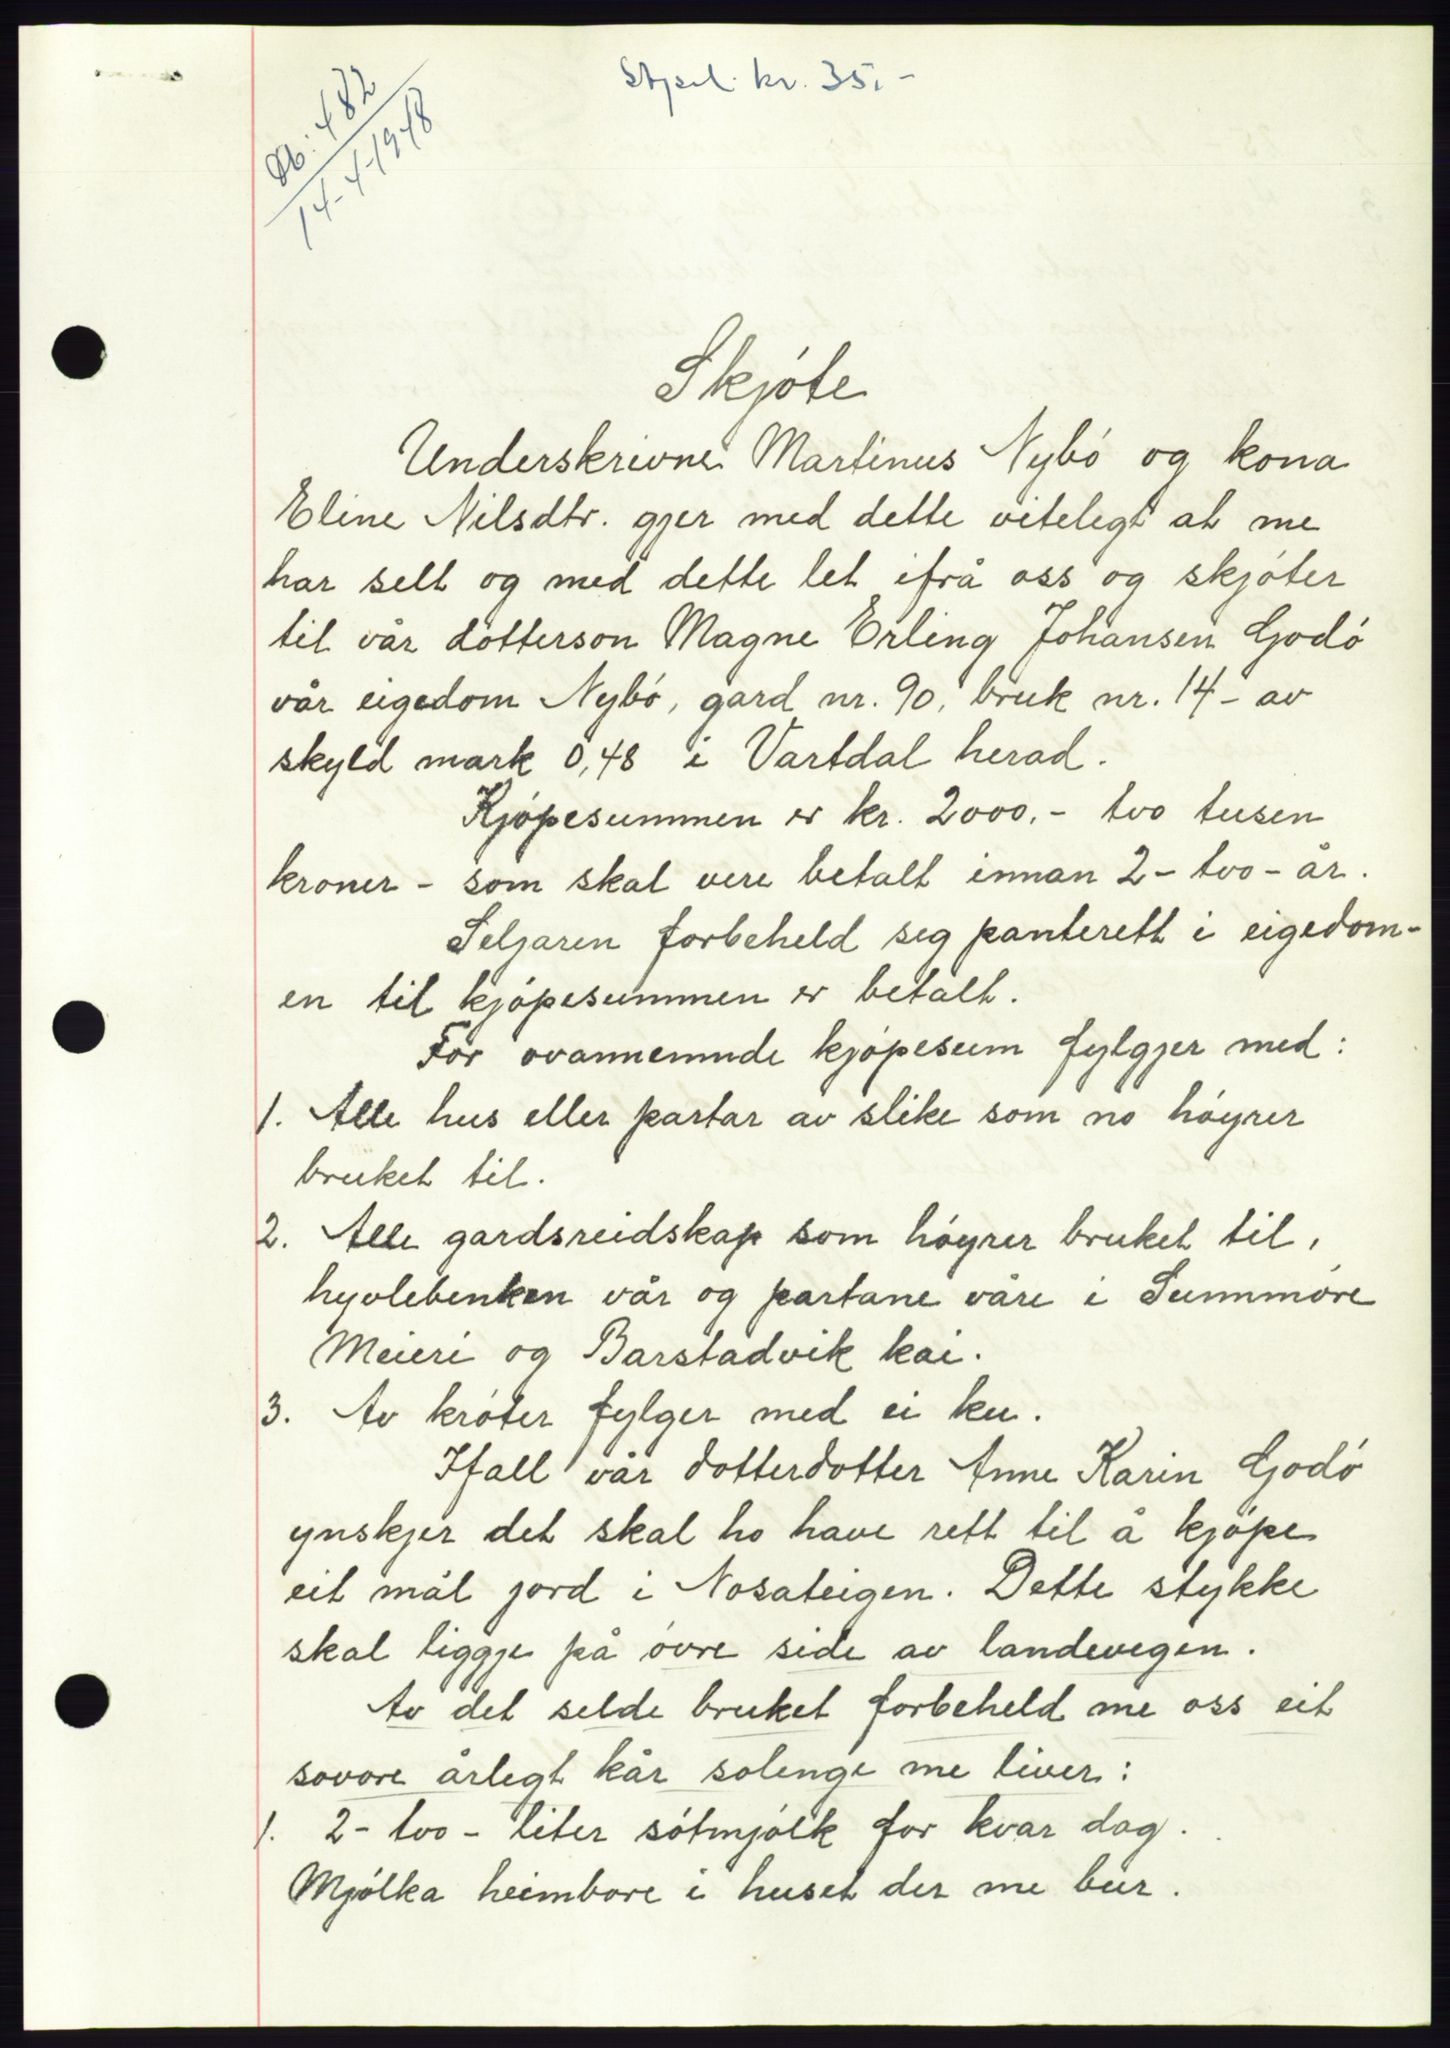 Stpel. kr. 35,-
Db: 482
14-4-1948
Skjóte
Underskrivne Martinus Nybó og kona
Eline Nilsdtr. gjer med dette vitelegt at me
har selt og med dette let ifrå oss og skjóter
til vår dotterson Magne Erling Johansen Godó
vår eigedom Nybó, gard nr. 90, bruk nr. 14 - av
skyld mark 0,48 i Vartdal herad.
Kjópesummen er kr. 2000,- tvo tusen
kroner - som skal vere betalt innan 2 - tvo - år.
Seljaren forbeheld seg panterett i eigedom-
en til kjópesummen er betalt.
For ovannemnde kjópesum fylgjer med:
1. Alle hus eller partar av slike som no höyrer
bruket til.
2. Alle gardsreidskap som höyrer bruket til,
hyvlebenken vår og partane våre i Sunnmöre
Meieri og Barstadvik kai.
3. Av króter fylger med ei ku.
Ifall vår dotterdotter Anne Karin Godó
ynskjer det skal ho have rett til å kjópe
eit mål jord i Nosateigen. Dette stykke
skal liggje på óvre side av landevegen.
Av det selde bruket forbeheld me oss eit
sovore årlegt kår solenge me liver:
1. 2 - tvo - liter sótmjólk for kvar dag.
Mjólka heimbore i huset der me bur.